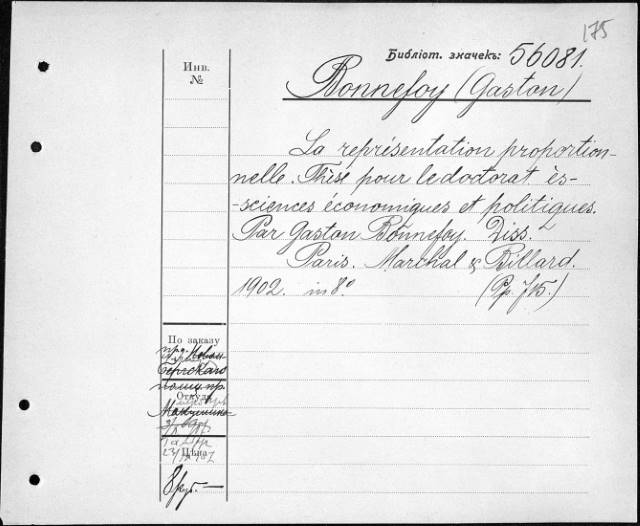 175
Библіот. значекъ: 56081.
Инв.
№
Bonnefoy (Gaston)
La représentation proportion-
nelle. Thèse pour le doctorat ès-
-sciences économiques et politiques.
Par Gaston Bonnefoy. Diss.
Paris. Marchal & Billard.
1902. in 8°. (Pp. 715.)
По заказу
Откуда
Цѣна
8 руб. —